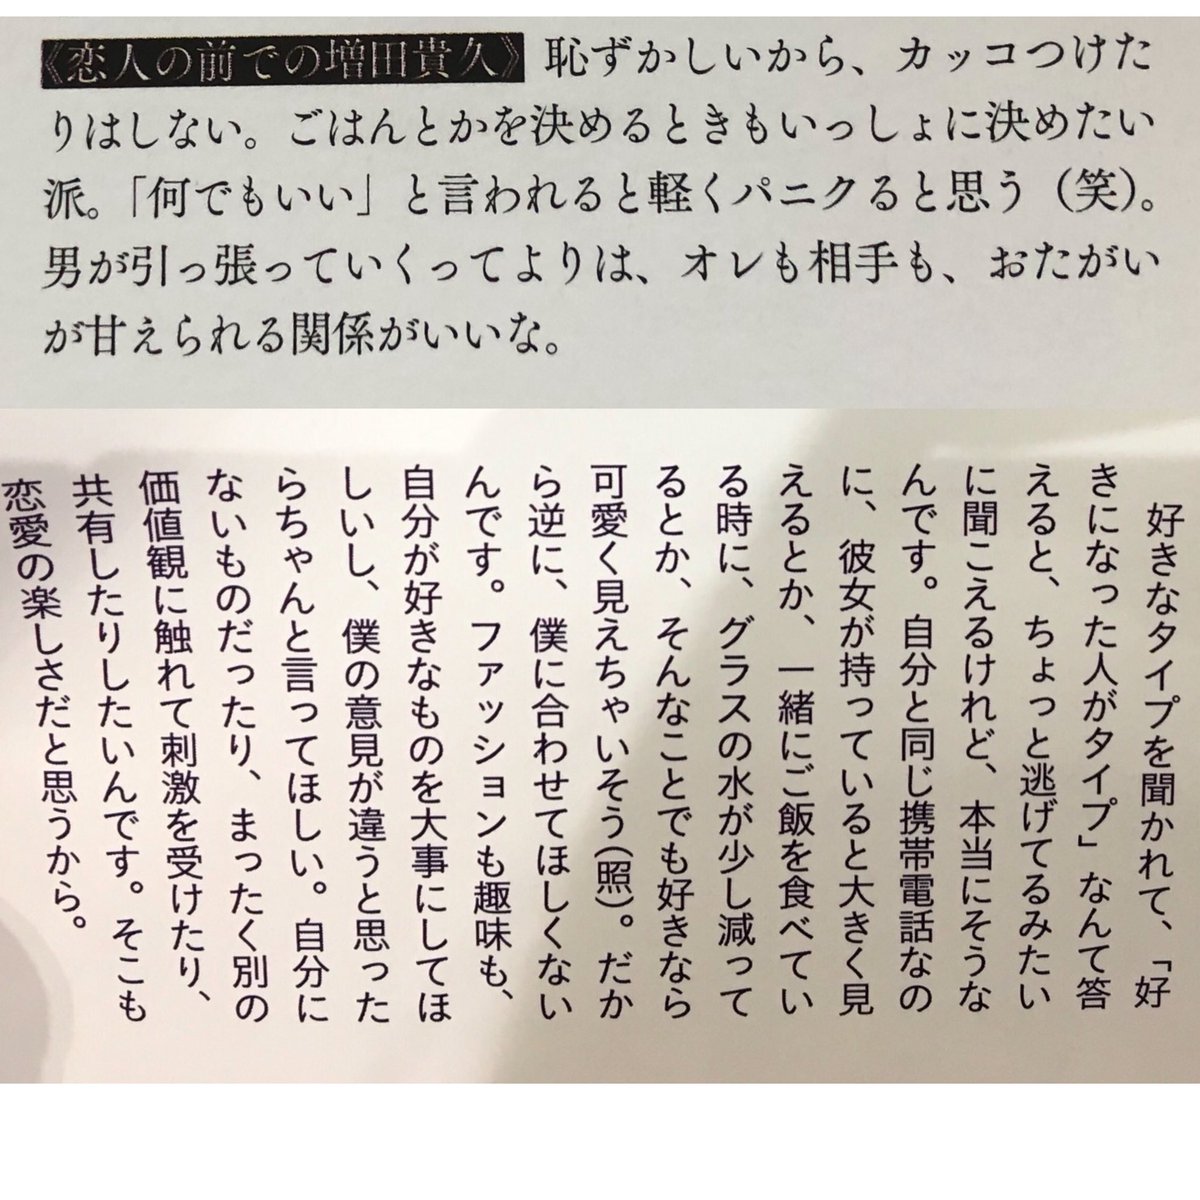 《恋人の前での増田貴久》 恥ずかしいから、カッコつけた
りはしない。ごはんとかを決めるときもいっしょに決めたい
派。「何でもいい」と言われると軽くパニクると思う（笑）。
男が引っ張っていくってよりは、オレも相手も、おたがい
が甘えられる関係がいいな。
好きなタイプを聞かれて、「好
きになった人がタイプ」なんて答
えると、ちょっと逃げてるみたい
に聞こえるけれど、本当にそうな
んです。自分と同じ携帯電話なの
に、彼女が持っていると大きく見
えるとか、一緒にご飯を食べてい
る時に、グラスの水が少し減って
るとか、そんなことでも好きなら
可愛く見えちゃいそう（照）。だか
ら逆に、僕に合わせてほしくない
んです。ファッションも趣味も、
自分が好きなものを大事にしてほ
しいし、僕の意見が違うと思った
らちゃんと言ってほしい。自分に
ないものだったり、まったく別の
価値観に触れて刺激を受けたり、
共有したりしたいんです。そこも
恋愛の楽しさだと思うから。